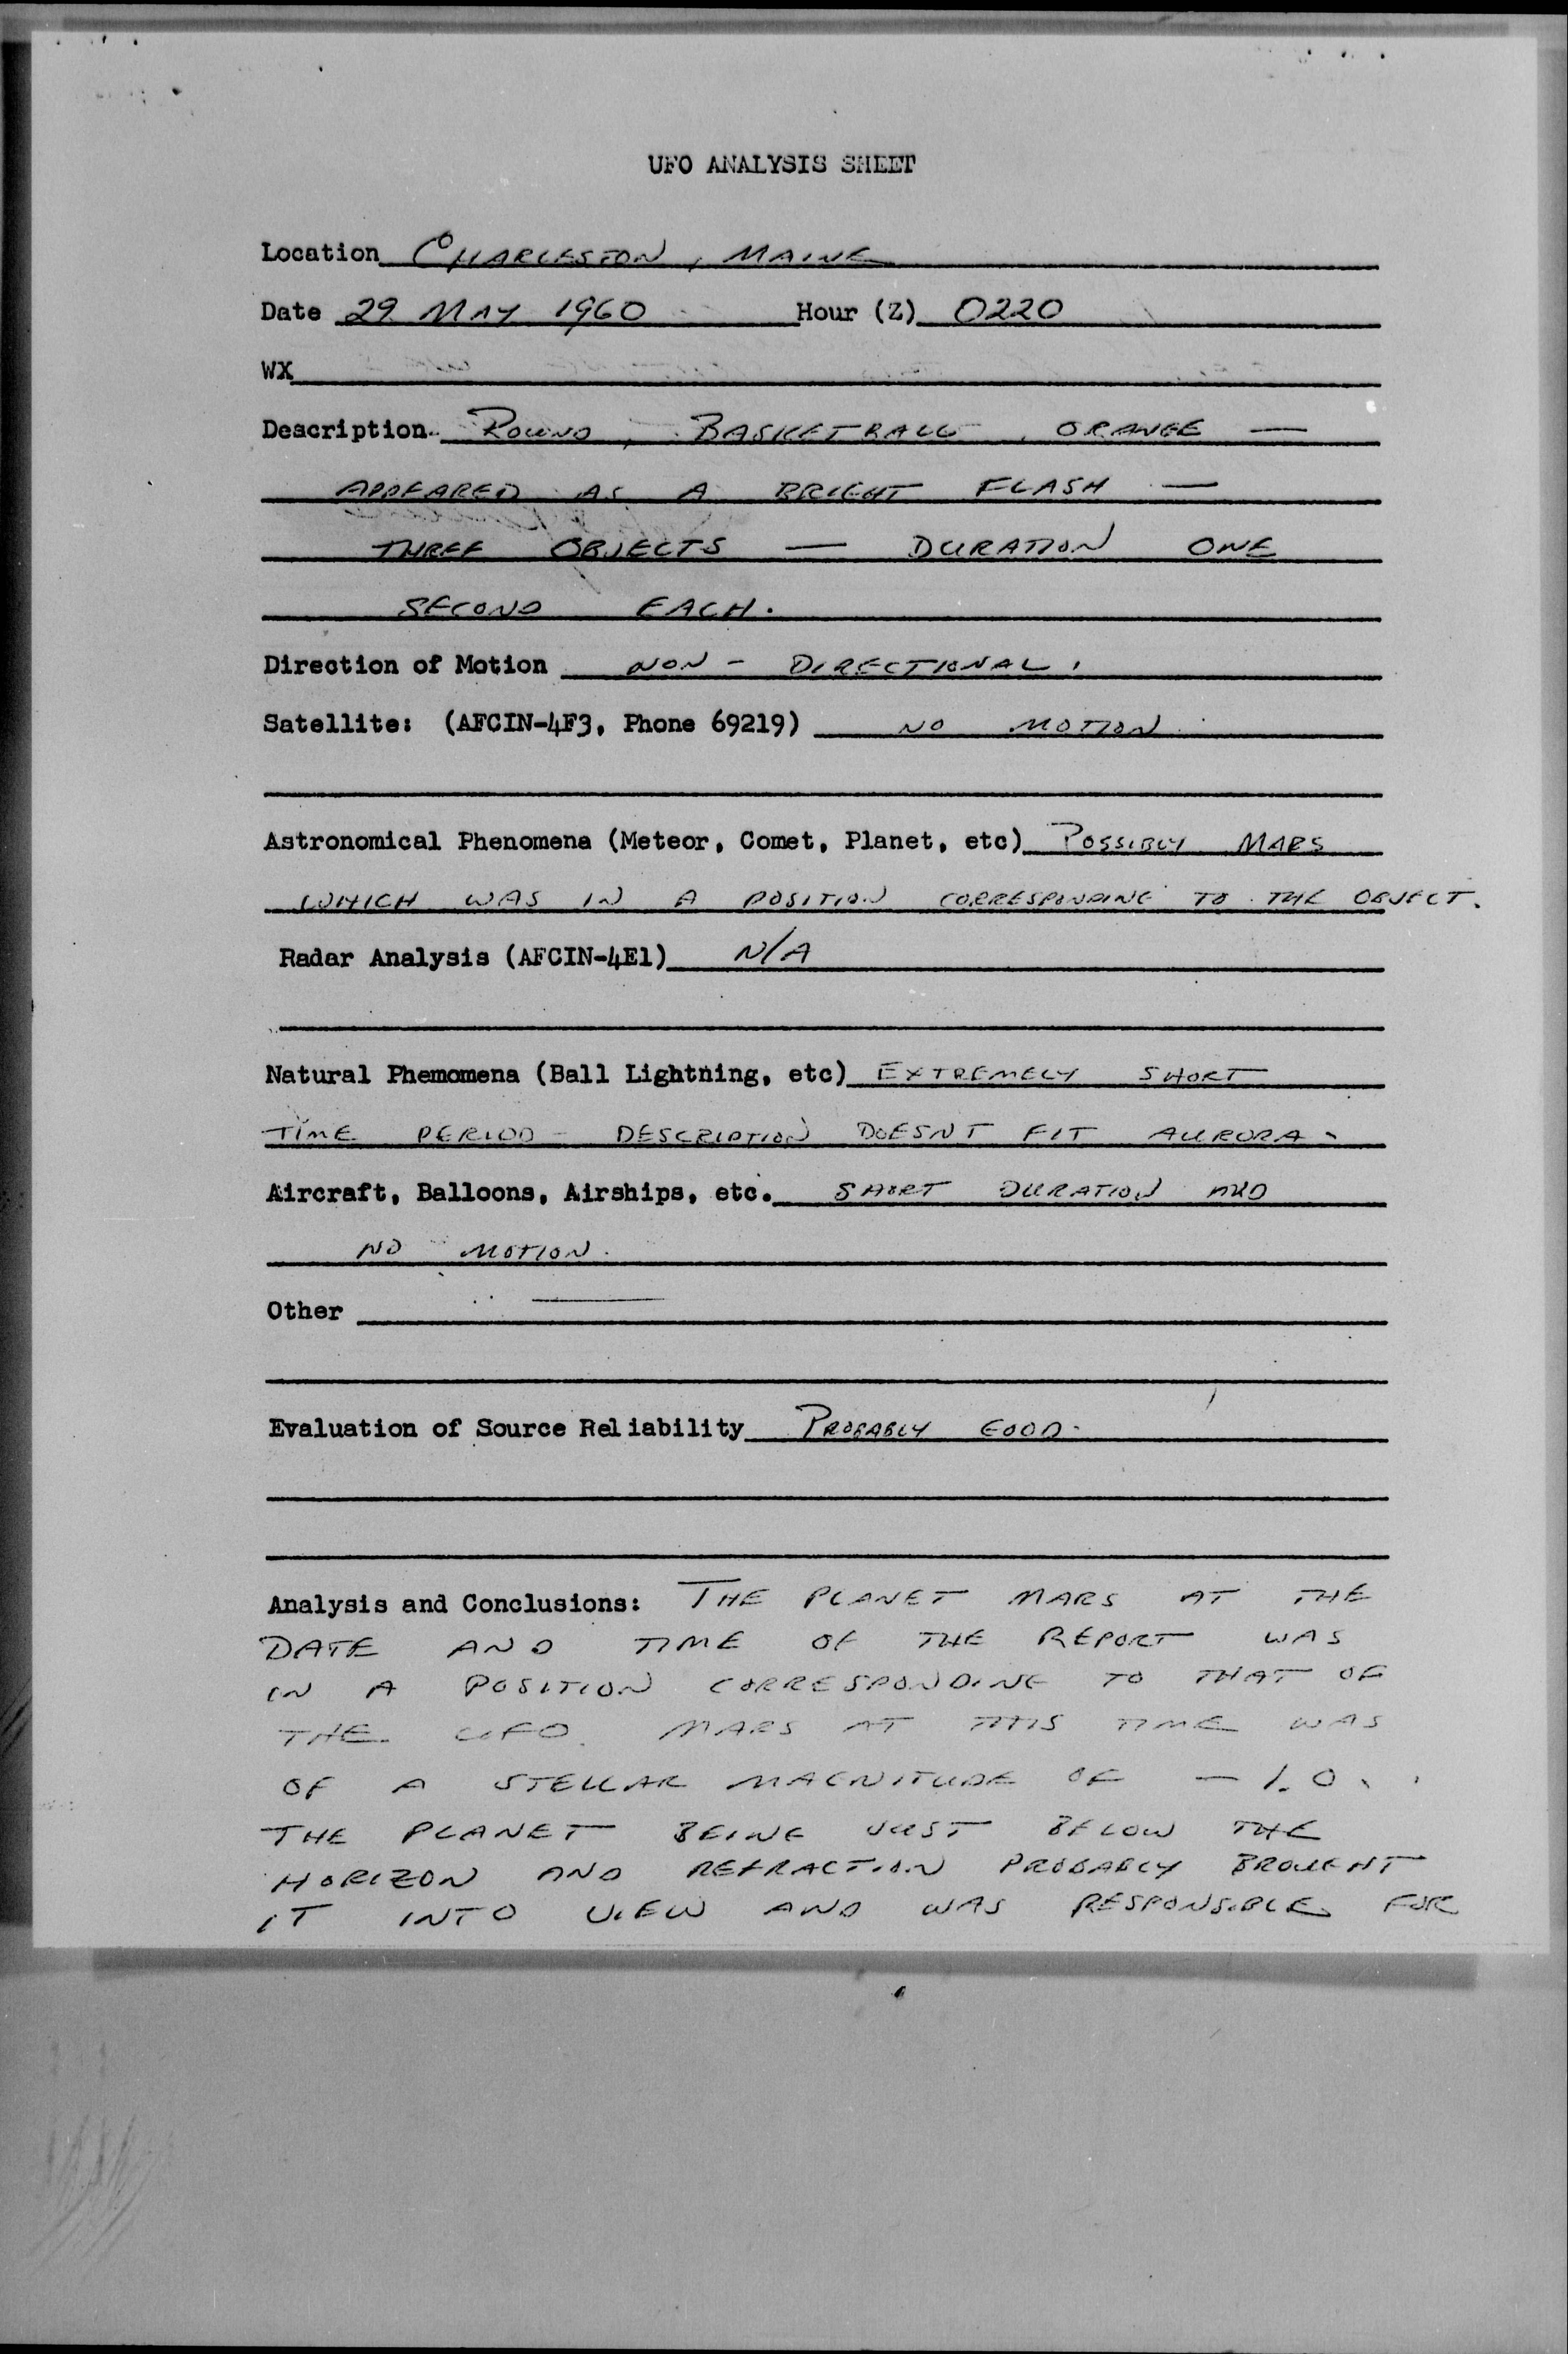 UFO ANALYSIS SHEET
Location CHARLESTON, MAINE
Date 29 MAY 1960 Hour (Z) 0220
WX
Description ROUND, BASKETBALL, ORANGE —
APPEARED AS A BRIGHT FLASH —
THREE OBJECTS — DURATION ONE
SECOND EACH.
Direction of Motion NON - DIRECTIONAL.
Satellite: (AFCIN-4F3, Phone 69219) NO MOTION
Astronomical Phenomena (Meteor, Comet, Planet, etc) POSSIBLY MARS
WHICH WAS IN A POSITION CORRESPONDING TO THE OBJECT.
Radar Analysis (AFCIN-4E1) N/A
Natural Phemomena (Ball Lightning, etc) EXTREMELY SHORT
TIME PERIOD - DESCRIPTION DOESNT FIT AURORA -
Aircraft, Balloons, Airships, etc. SHORT DURATION AND
NO MOTION.
Other —
Evaluation of Source Reliability PROBABLY GOOD.
Analysis and Conclusions: THE PLANET MARS AT THE
DATE AND TIME OF THE REPORT WAS
IN A POSITION CORRESPONDING TO THAT OF
THE UFO. MARS AT THIS TIME WAS
OF A STELLAR MAGNITUDE OF - 1.0.
THE PLANET BEING JUST BELOW THE
HORIZON AND REFRACTION PROBABLY BROUGHT
IT INTO VIEW AND WAS RESPONSIBLE FOR